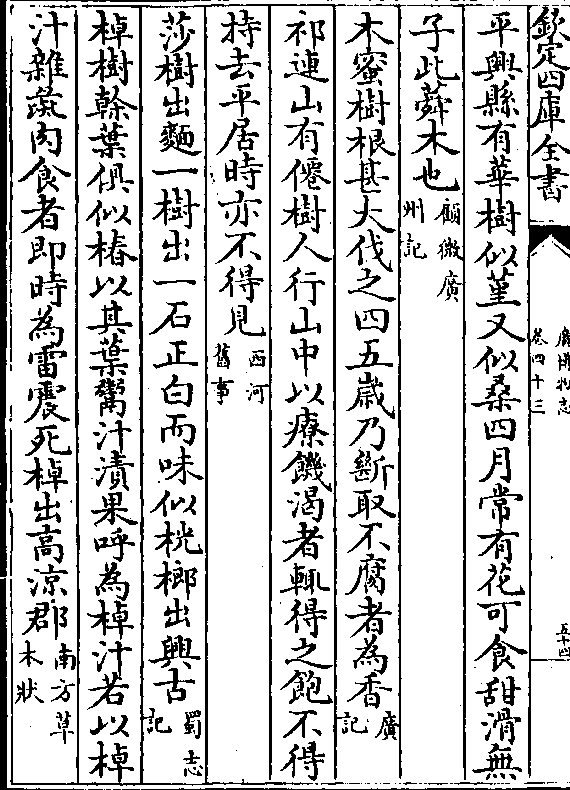 欽定四庫全書
廣博物志
卷四十三
五十四
平興縣有華樹似堇又似桑四月常有花可食甜滑無
子此蕣木也顧微廣州記
木蜜樹根甚大伐之四五嵗乃斷取不腐者為香廣記
祁連山有僊樹人行山中以療饑渴者輒得之飽不得
持去平居時亦不得見西河舊事
莎樹出麵一樹出一石正白而味似桄榔出興古蜀志記
棹樹榦葉俱似椿以其葉鬻汁漬果呼為棹汁若以棹
汁雜彘肉食者即時為雷震死棹出高涼郡南方草木狀